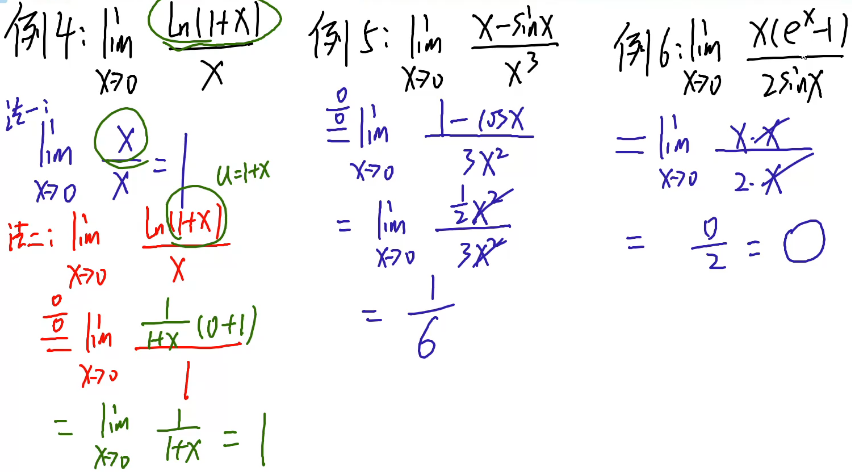 例4: lim x→0 ln(1+x)/x
法一:
lim x→0 x/x = 1
u=1+x
法二: lim x→0 ln(1+x)/x
0/0 = lim x→0 1/(1+x) (0+1) / 1
= lim x→0 1/(1+x) = 1
例5: lim x→0 (x-sinx)/x³
0/0 = lim x→0 (1-cosx)/3x²
= lim x→0 (1/2 x²)/3x²
= 1/6
例6: lim x→0 x(eˣ-1)/2sinx
= lim x→0 x·x/2·x
= 0/2 = 0